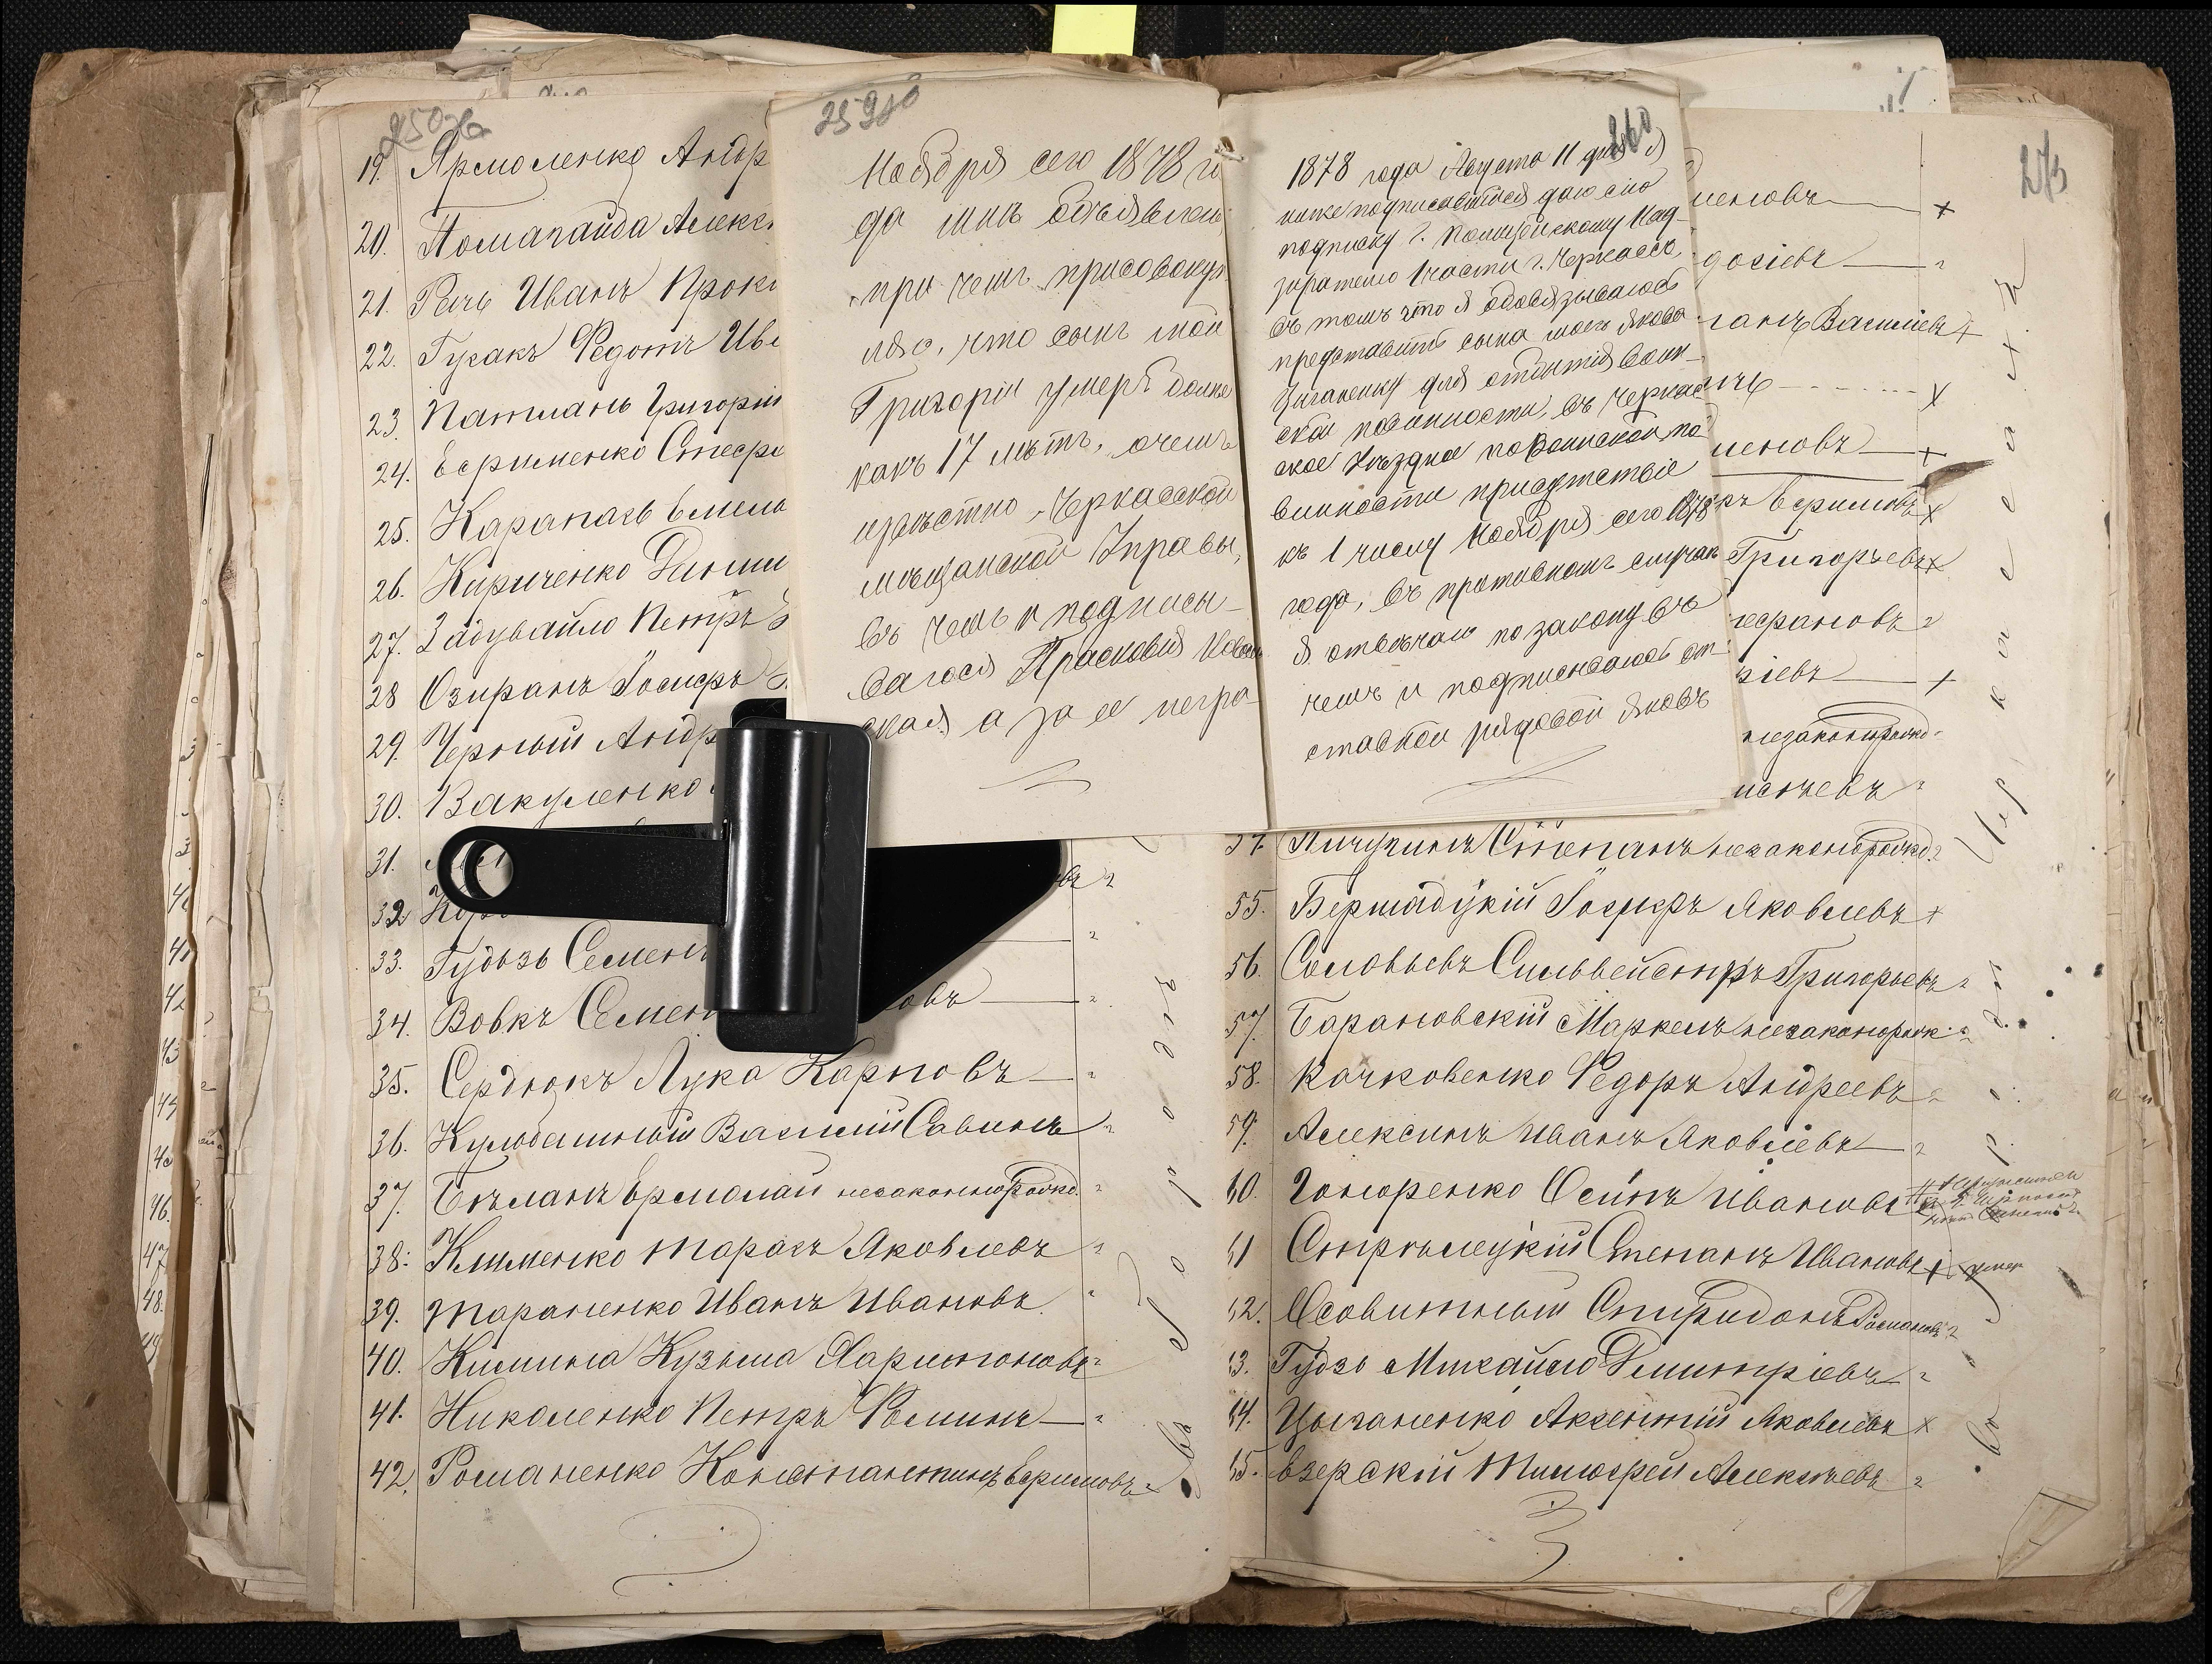 19. Ярмоленко Андр
20. Помагайба Алекс
21. Речь Иванъ Проко
22. Гузакъ Федотъ Ива
23. Патланъ Григорій
24. Ефименко Стефа
25. Карапась Емель
26. Кириченко Дими
27. Задувайло Петръ
28 Озиранъ Іосифъ
29. Черный Андр
30. Вакуленко
31.
32
33. Гудзь Семенъ
34. Вовкъ Семенъ
35. Сердюкъ Лука Карповъ
36. Кулебашный Василій Савинъ
37. Бѣланъ Ермолай незаконнорожд.
38. Клименко Тарасъ Яковлевъ
39. Тараненко Иванъ Ивановъ
40. Кислина Кузьма Харитоновъ
41. Николенко Петръ Фоминъ
42. Романенко Константинъ Ефимовъ
259
Ноября сего 1878 го
да мнѣ объявлено,
при чемъ присовокуп
ляю, что сынъ мой
Григорій умеръ болѣе
какъ 17 лѣтъ, о чемъ
извѣстно Черкасской
мѣщанской Управы,
въ чемъ и подписы-
валася Прасковія
ская а за ее негра-
260
1878 года Августа 11 дня я
ниже подписавшійся даю сію
подписку Г. Полицейскому Над-
зирателю 1 части г. Черкассъ,
въ томъ что я обовязываюсь
представить сына моего Якова
Цыганенку для отбытія воин-
ской повинности, въ Черкас-
ское Уѣздное по воинской по
винности присутствіе
къ 1 числу Ноября сего 1878
года, въ противномъ случаѣ
я отвѣчаю по закону въ
чемъ и подписываюсь от-
ставной рядовой Яковъ
273
меновъ
досіевъ
ганъ Василіевъ
меновъ
ръ Ефимовъ
Григорьевъ
тефановъ
незаконнорожд.
54. Пичугинъ Степанъ незаконорожд.
55. Бершадскій Іосифъ Яковлевъ
56. Соловьевъ Сильвейстръ Григорьевъ
57. Барановскій Маркелъ незаконорожд.
58. Качковенко Федоръ Андреевъ
59. Алексинъ Иванъ Яковлевъ
60. Гоноренко Осипъ Ивановъ
61 Стрѣлецкій Степанъ Ивановъ умер
62. Особитный Спиридонъ Романовъ
63. Гудзь Михайло Димитріевъ
64. Цыганенко Аксентій Яковлевъ
65. Езерскій Тимофей Алексѣевъ